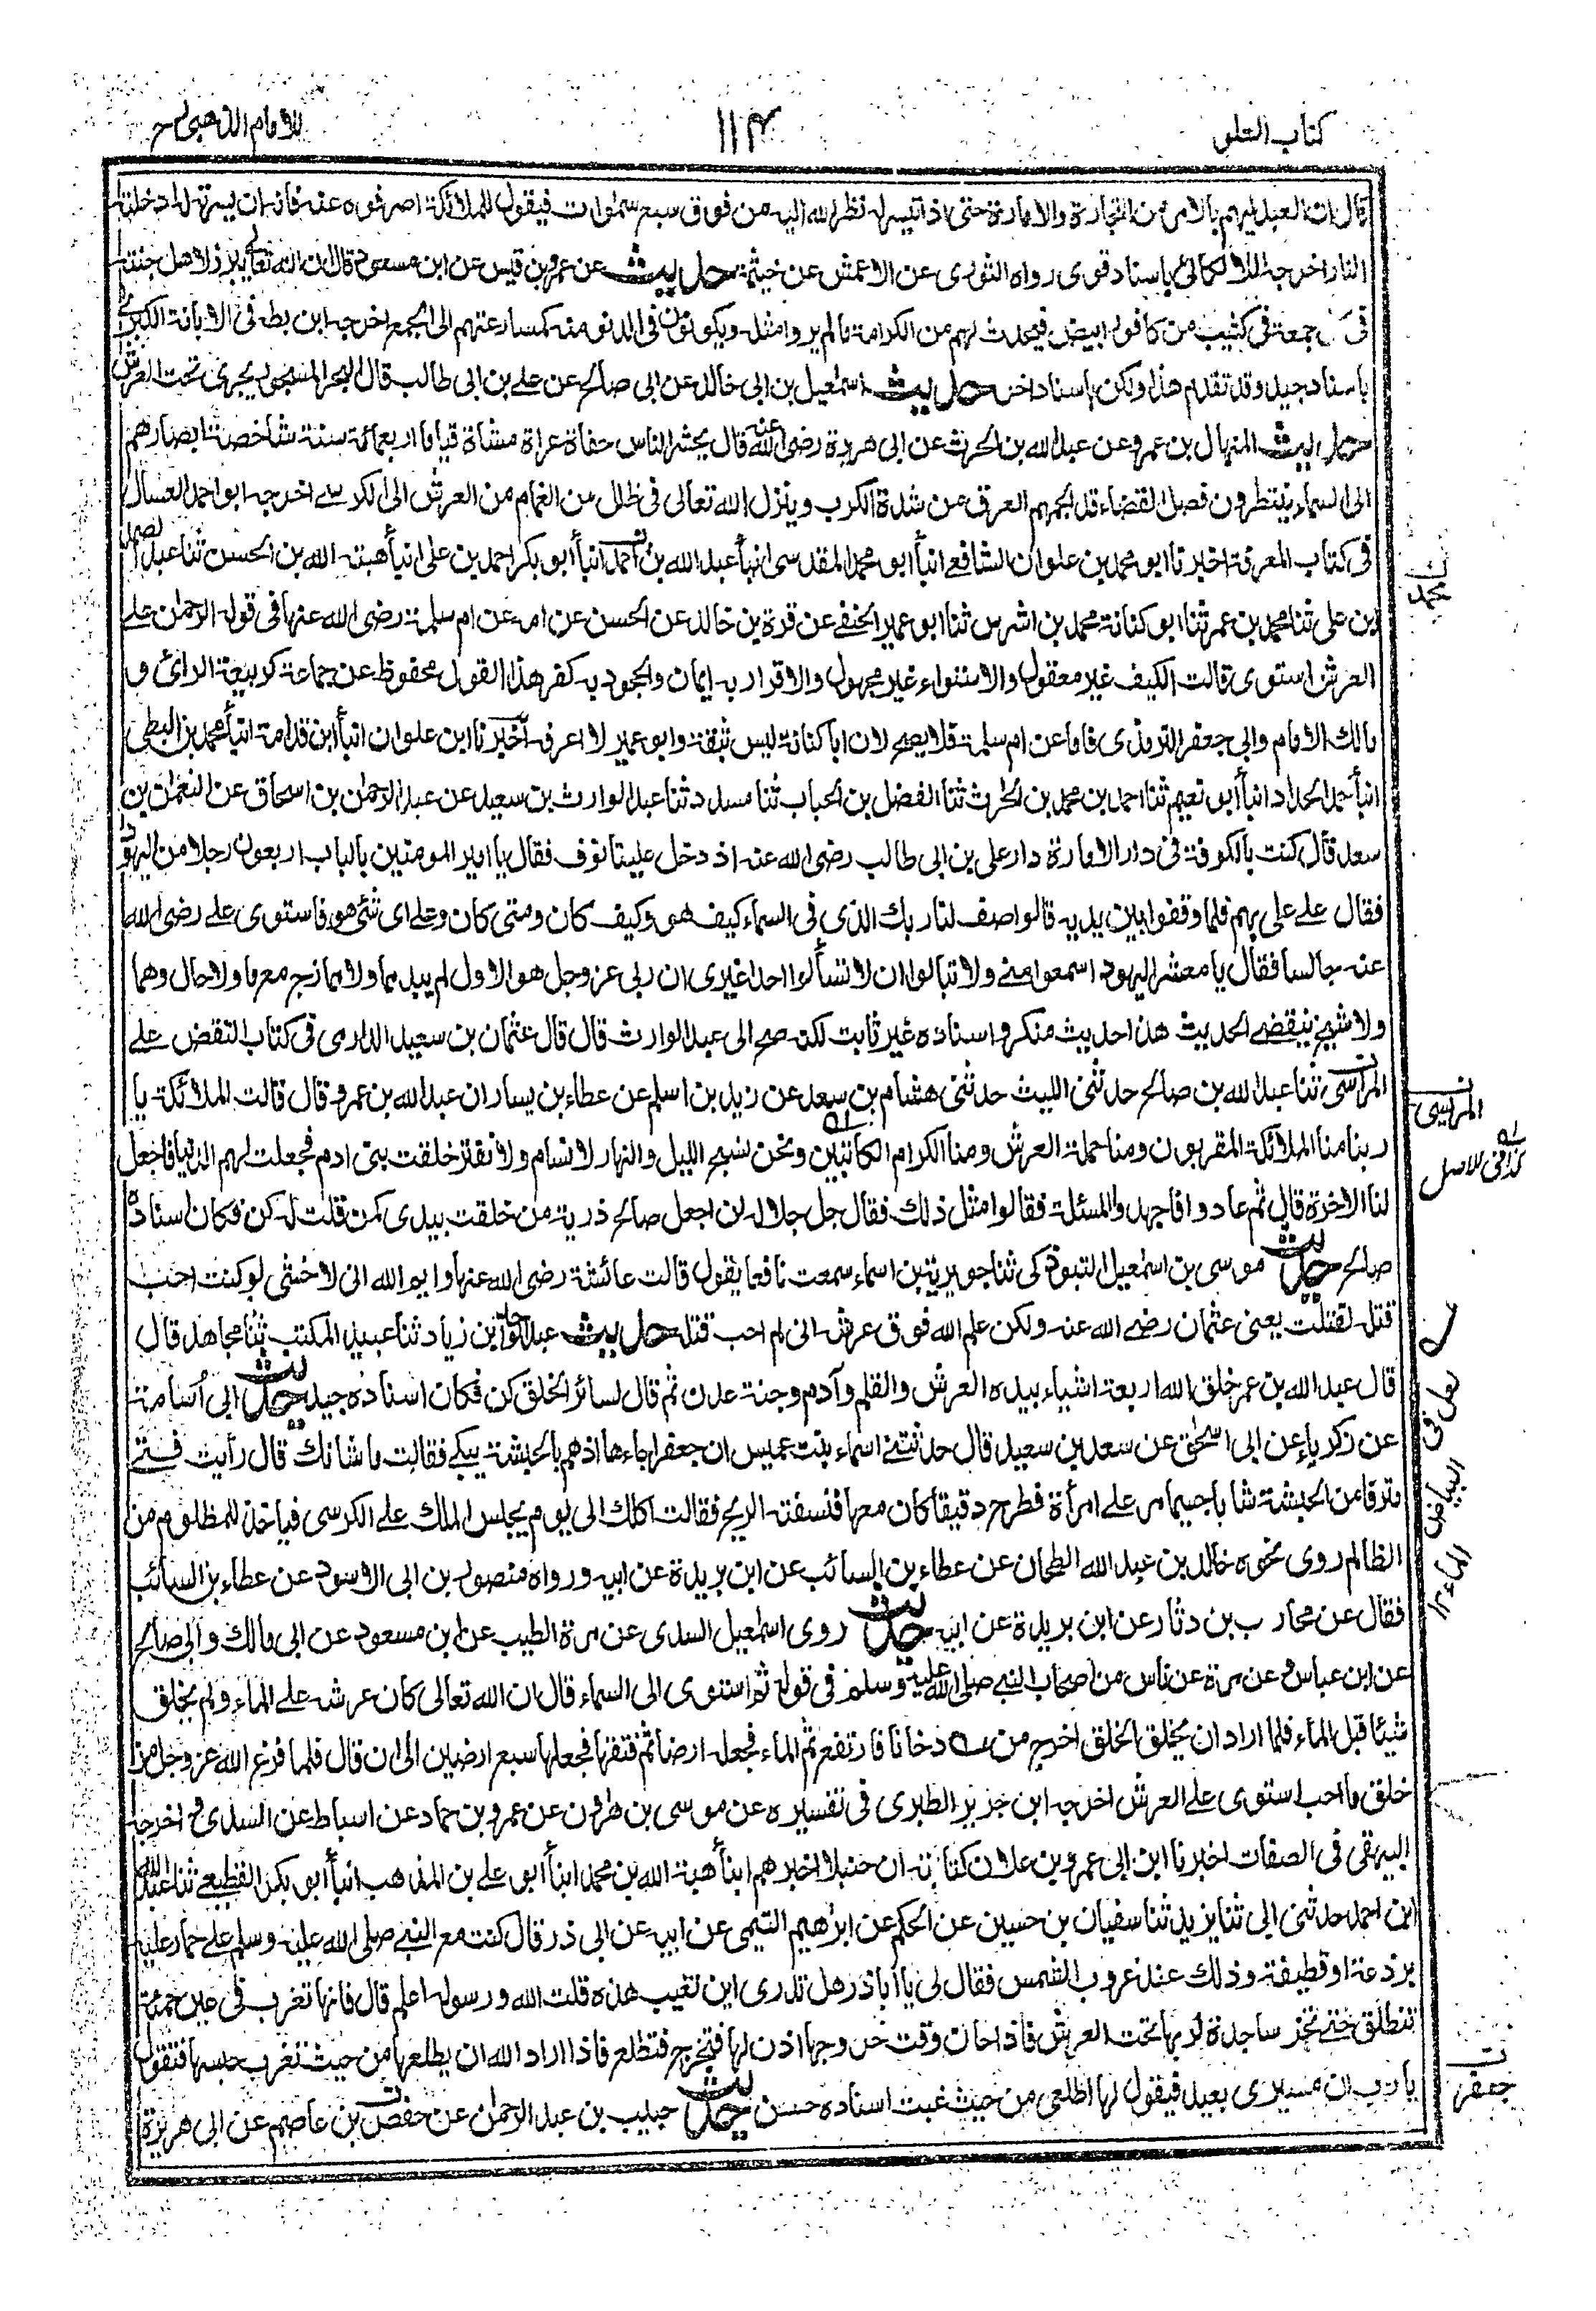 كتاب العلو
١١٤
للامام الذهبى رح
قال ان العبد ليهم بالامر من التجارة والامارة حتى اذا تيسر له نظر الله اليه من فوق سبع سموات فيقول للملائكة اصرفوه عنه فانه ان يسرته له ادخلته
النار اخرجه اللالكائى باسناد قوى رواه الثورى عن الاعمش عن خيثمة حديث عن عمرو بن قيس عن ابن مسعود قال ان الله تعالى يبرز لاهل جنته
فى جمعة فى كثيب من كافور ابيض فيحدث لهم من الكرامة مالم يروا مثله ويكونون فى الدنو منه كمسارعتهم الى الجمع اخرجه ابن بطه فى الابانة الكبرى
باسناد جيد وقد تقدم هذا ولكن باسناد اخر حديث اسمعيل بن ابى خالد عن ابى صالح عن على بن ابى طالب قال البحر المسجور يجرى تحت العرش
حديث المنهال بن عمرو عن عبد الله بن الحرث عن ابى هريرة رضى الله عنه قال يحشر الناس حفاة عراة مشاة قياما اربعمائة سنة شاخصة ابصارهم
الى السماء ينتظرون فصل القضاء قد الجمهم العرق من شدة الكرب وينزل الله تعالى فى ظلل من الغمام من العرش الى الكرسى اخرجه ابو احمد العسال
فى كتاب المعرفة اخبرنا ابو محمد بن علوان الشافعى انبأ ابو محمد المقدسى انبأ عبد الله بن احمد انبأ ابو بكر احمد بن على انبأ هبة الله بن الحسن ثنا عبد الصمد
محمد ن
ابن على ثنا محمد بن عمر ثنا ابو كنانة محمد بن اشرس ثنا ابو عمير الحنفى عن قرة بن خالد عن الحسن عن امه عن ام سلمة رضى الله عنها فى قوله الرحمن على
العرش استوى قالت الكيف غير معقول والاستواء غير مجهول والاقرار به ايمان والجحود به كفر هذا القول محفوظ عن جماعة كربيعة الرائ و
مالك الامام وابى جعفر الترمذى فاما عن ام سلمة فلا يصح لان ابا كنانة ليس بثقة وابو عمير لا اعرفه اخبرنا ابن علوان انبأ ابن قدامة انبأ محمد بن البطى
انبأ حمد الحداد انبأ ابو نعيم ثنا احمد بن محمد بن الحرث ثنا الفضل بن الحباب ثنا مسدد ثنا عبد الوارث بن سعيد عن عبد الرحمن بن اسحاق عن النعمان بن
سعد قال كنت بالكوفة فى دار الامارة دار على بن ابى طالب رضى الله عنه اذ دخل علينا نوف فقال يا امير المومنين بالباب اربعون رجلا من اليهود
فقال على على بهم فلما وقفوا بين يديه قالوا صف لنا ربك الذى فى السماء كيف هو وكيف كان ومتى كان وعلى اى شئ هو فاستوى على رضى الله
عنه جالسا فقال يا معشر اليهود اسمعوا منى ولا تبالوا ان لا تسألوا احدا غيرى ان ربى عز وجل هو الاول لم يبد مما ولا ممازج معما ولا حال وهما
ولا شبح يتقضى الحديث هذا حديث منكر واسناده غير ثابت لكنه صح الى عبد الوارث قال قال عثمان بن سعيد الدارمى فى كتاب النقض على
المراسى ثنا عبد الله بن صالح حدثنى الليث حدثنى هشام بن سعد عن زيد بن اسلم عن عطاء بن يسار ان عبد الله بن عمرو قال قالت الملائكة يا
المريسى ن
ربنا منا الملائكة المقربون ومنا حملة العرش ومنا الكرام الكاتبين ونحن نسبح الليل والنهار لا نسام ولا نفتر خلقت بنى ادم فجعلت لهم الدنيا فاجعل
كذا فى الاصل
لنا الاخرة قال ثم عادوا فاجهدوا المسئلة فقالوا مثل ذلك فقال جل جلاله لن اجعل صالح ذرية من خلقت بيدى كمن قلت له كن فكان اسناده
صالح حديث موسى بن اسمعيل التبوذكى ثنا جويرية بن اسماء سمعت نافعا يقول قالت عائشة رضى الله عنها وايم الله انى لاخشى لو كنت احب
قتله لقتلت يعنى عثمان رضى الله عنه ولكن علم الله فوق عرشه انى لم احب قتله حديث عبد الواحد بن زياد ثنا عبيد المكتب ثنا مجاهد قال
قال عبد الله بن عمر خلق الله اربعة اشياء بيده العرش والقلم وآدم وجنة عدن ثم قال لسائر الخلق كن فكان اسناده جيد حديث ابى أسامة
عن زكرياء عن ابى اسحق عن سعد بن سعيد قال حدثتنى اسماء بنت عميس ان جعفرا جاءها اذ هم بالحبشة يبكى فقالت ما شانك قال رأيت فتى
مترفا من الحبشة شابا جسيما مر على امرأة فطرح دقيقا كان معها فنسفته الريح فقالت اكلك الى يوم يجلس الملك على الكرسى فياخذ للمظلوم من
الظالم روى نحوه خالد بن عبد الله الطحان عن عطاء بن السائب عن ابن بريدة عن ابيه ورواه منصور بن ابى الاسود عن عطاء بن السائب
فقال عن محارب بن دثار عن ابن بريدة عن ابيه حديث روى اسمعيل السدى عن مرة الطيب عن ابن مسعود عن ابى مالك وابى صالح
لعل فى البياض الماء ١٢
عن ابن عباس وعن مرة عن ناس من اصحاب النبى صلى الله عليه وسلم فى قوله ثم استوى الى السماء قال ان الله تعالى كان عرشه على الماء ولم يخلق
شيئا قبل الماء فلما اراد ان يخلق الخلق اخرج من دخانا فارتفع ثم الماء فجعله ارضا ثم فتقها فجعلها سبع ارضين الى ان قال فلما فرغ الله عز وجل من
خلق ما احب استوى على العرش اخرجه ابن جرير الطبرى فى تفسيره عن موسى بن هرون عن عمرو بن حماد عن اسباط عن السدى واخرجه
البيهقى فى الصفات اخبرنا ابن ابى عمرو بن علان كتابة ان حنبلا اخبرهم انبأ هبة الله بن محمد انبأ ابو على بن المذهب انبأ ابو بكر القطيعى ثنا عبد الله
ابن احمد حدثنى ابى ثنا يزيد ثنا سفيان بن حسين عن الحكم عن ابرهيم التيمى عن ابيه عن ابى ذر قال كنت مع النبى صلى الله عليه وسلم على حمار عليه
برذعة او قطيفة وذلك عند غروب الشمس فقال لى يا أبا ذر هل تدرى اين تغيب هذه قلت الله ورسوله اعلم قال فانها تغرب فى عين حمئة
تنطلق حتى تخر ساجدة لربها تحت العرش فاذا حان وقت خروجها اذن لها فتخرج فتطلع فاذا اراد الله ان يطلعها من حيث تغرب حبسها فتقول
يا رب ان مسيرى بعيد فيقول لها اطلعى من حيث غبت اسناده حسن حديث حبيب بن عبد الرحمن عن حفص بن عاصم عن ابى هريرة
جعفر ن